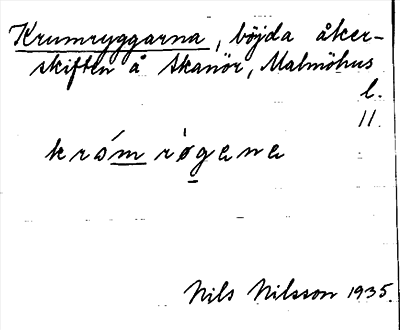 Krumryggarna, böjda åker-
skiften å Skanör, Malmöhus
l.
11.
króm røgena
Nils Nilsson 1935.